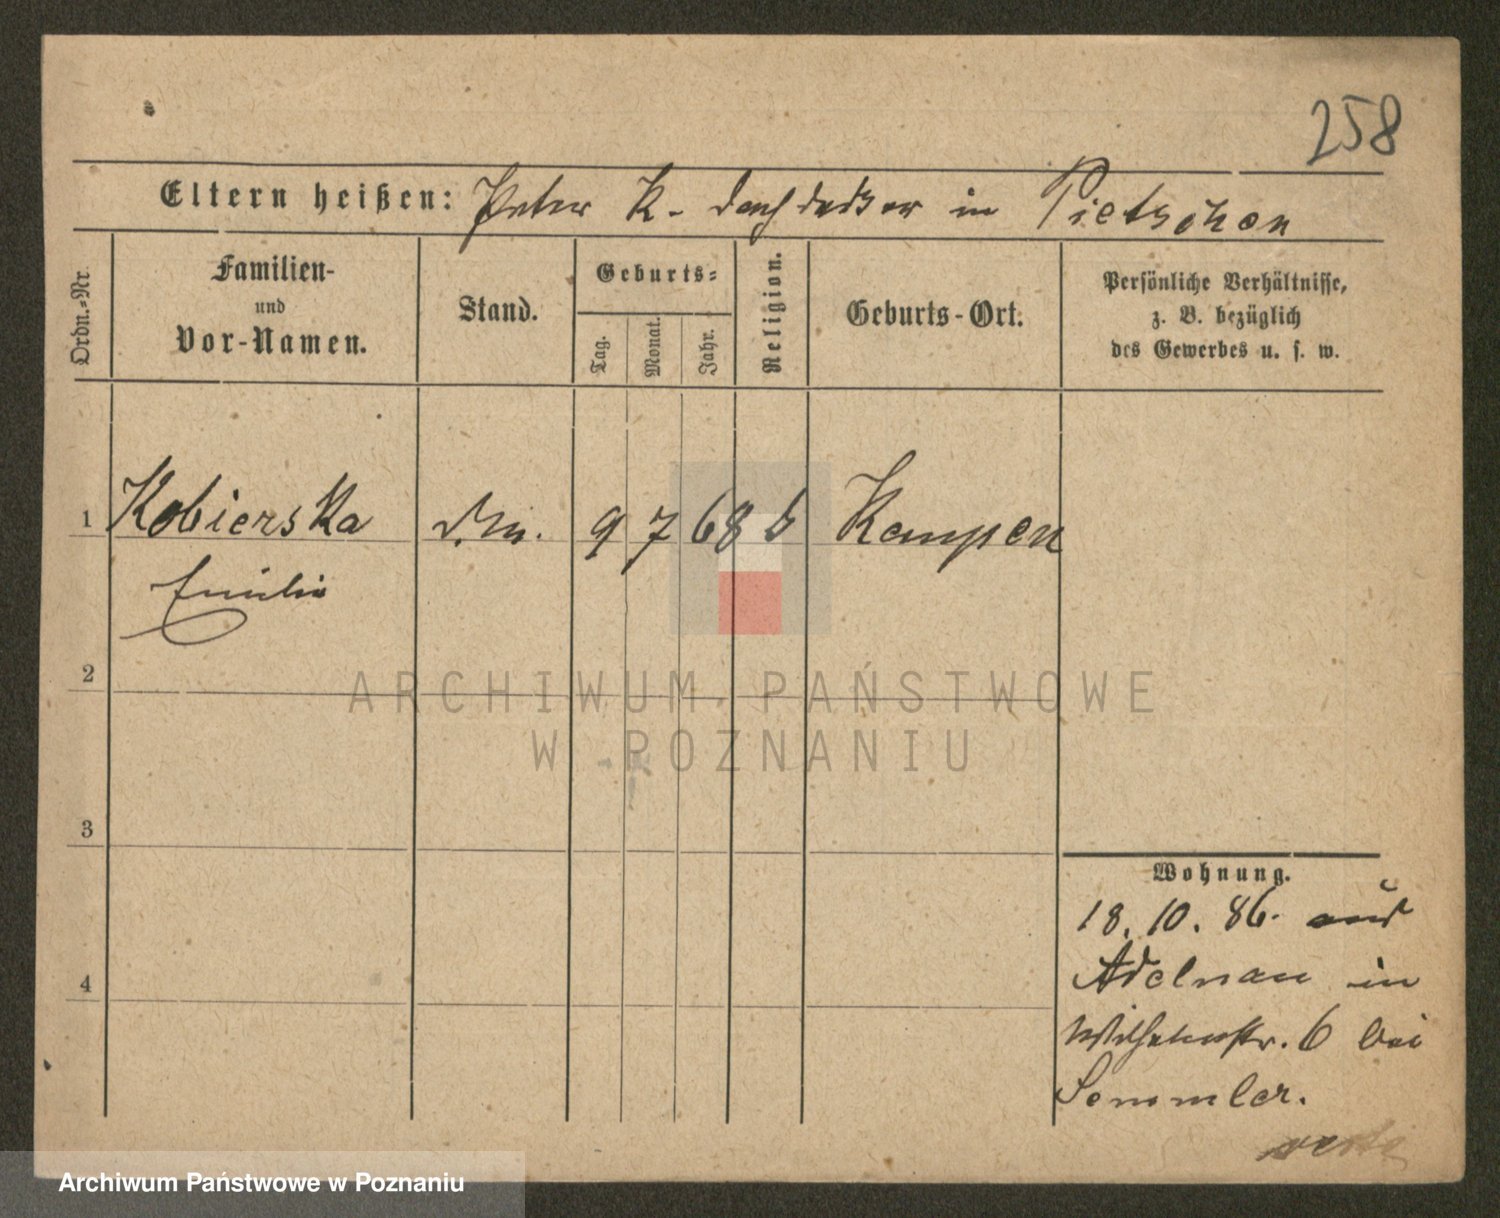 258
Eltern heißen: Peter K. Dachdecker in Pietschen
Ordn.-Nr.
Familien-
und
Vor-Namen.
Stand.
Geburts-
Tag.
Monat.
Jahr.
Religion.
Geburts-Ort.
Persönliche Verhältnisse,
z. B. bezüglich
des Gewerbes u. s. w.
1 Kobierska 9 7 68 Kempen
Emilie
2
3
4
Wohnung.
18. 10. 86. aus
Adelnau in
Wilhelmstr. 6 bei
Semmler.
verte
ARCHIWUM PAŃSTWOWE
W POZNANIU
Archiwum Państwowe w Poznaniu